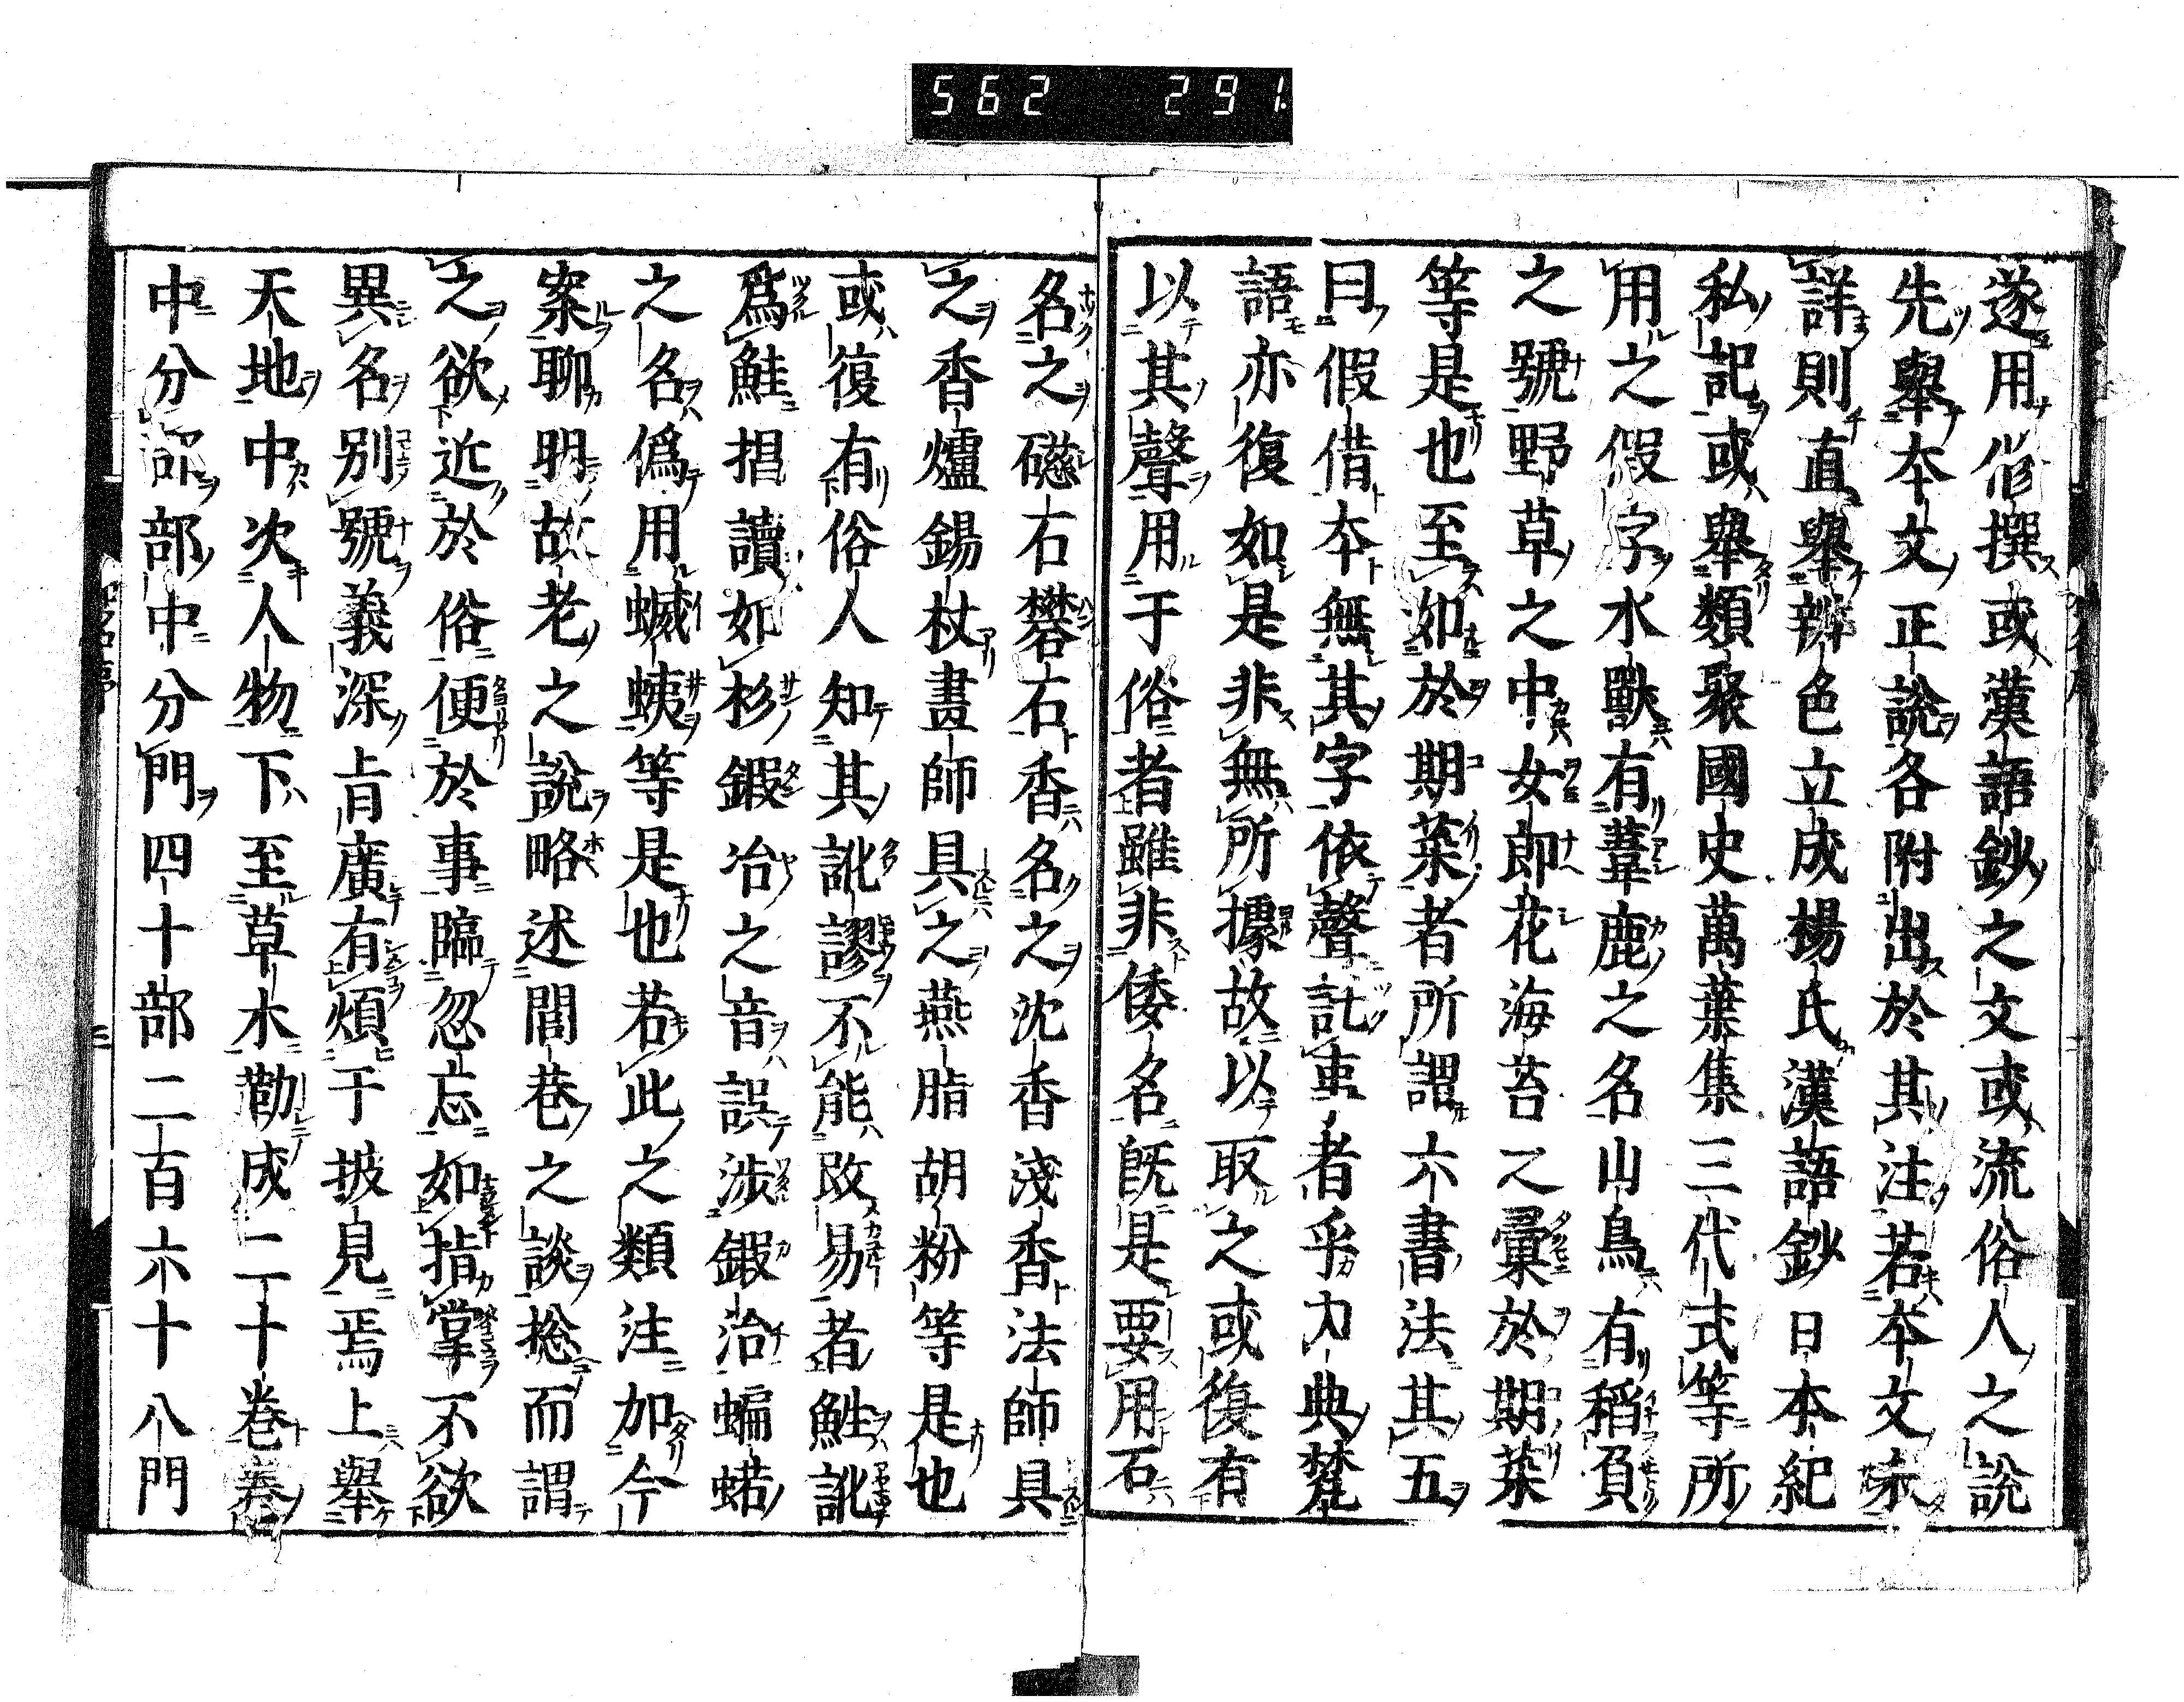 562 291
遂用脩撰或漢語鈔之文或流俗人之說
先舉本文正說各附出於其注若本文未
詳則直舉辨色立成楊氏漢語鈔日本紀
私記或舉類聚國史萬葉集三代式等所
用之假字水獸有葦鹿之名山鳥有稻負
之號野草之中女郎花海苔之彙於期菜
等是也至如於期菜者所謂六書法其五
曰假借本無其字依聲託事者乎內典梵
語亦復如是非無所據故以取之或復有
以其聲用于俗者雖非倭名既是要用石
名之磁石礬石香名之沈香淺香法師具
之香爐錫杖畫師具之燕脂胡粉等是也
或復有俗人知其訛謬不能改易者鮏訛
爲鮭榲讀如杉鍛冶之音誤涉鍜治蝙蝠
之名僞用蠛蛦等是也若此之類注加今
案聊明故老之說略述閭巷之談捴而謂
之欲近於俗便於事臨忽忘如指掌不欲
異名別號義深旨廣有煩于披見焉上舉
天地中次人物下至草木勒成二十卷卷
中分部部中分門四十部二百六十八門